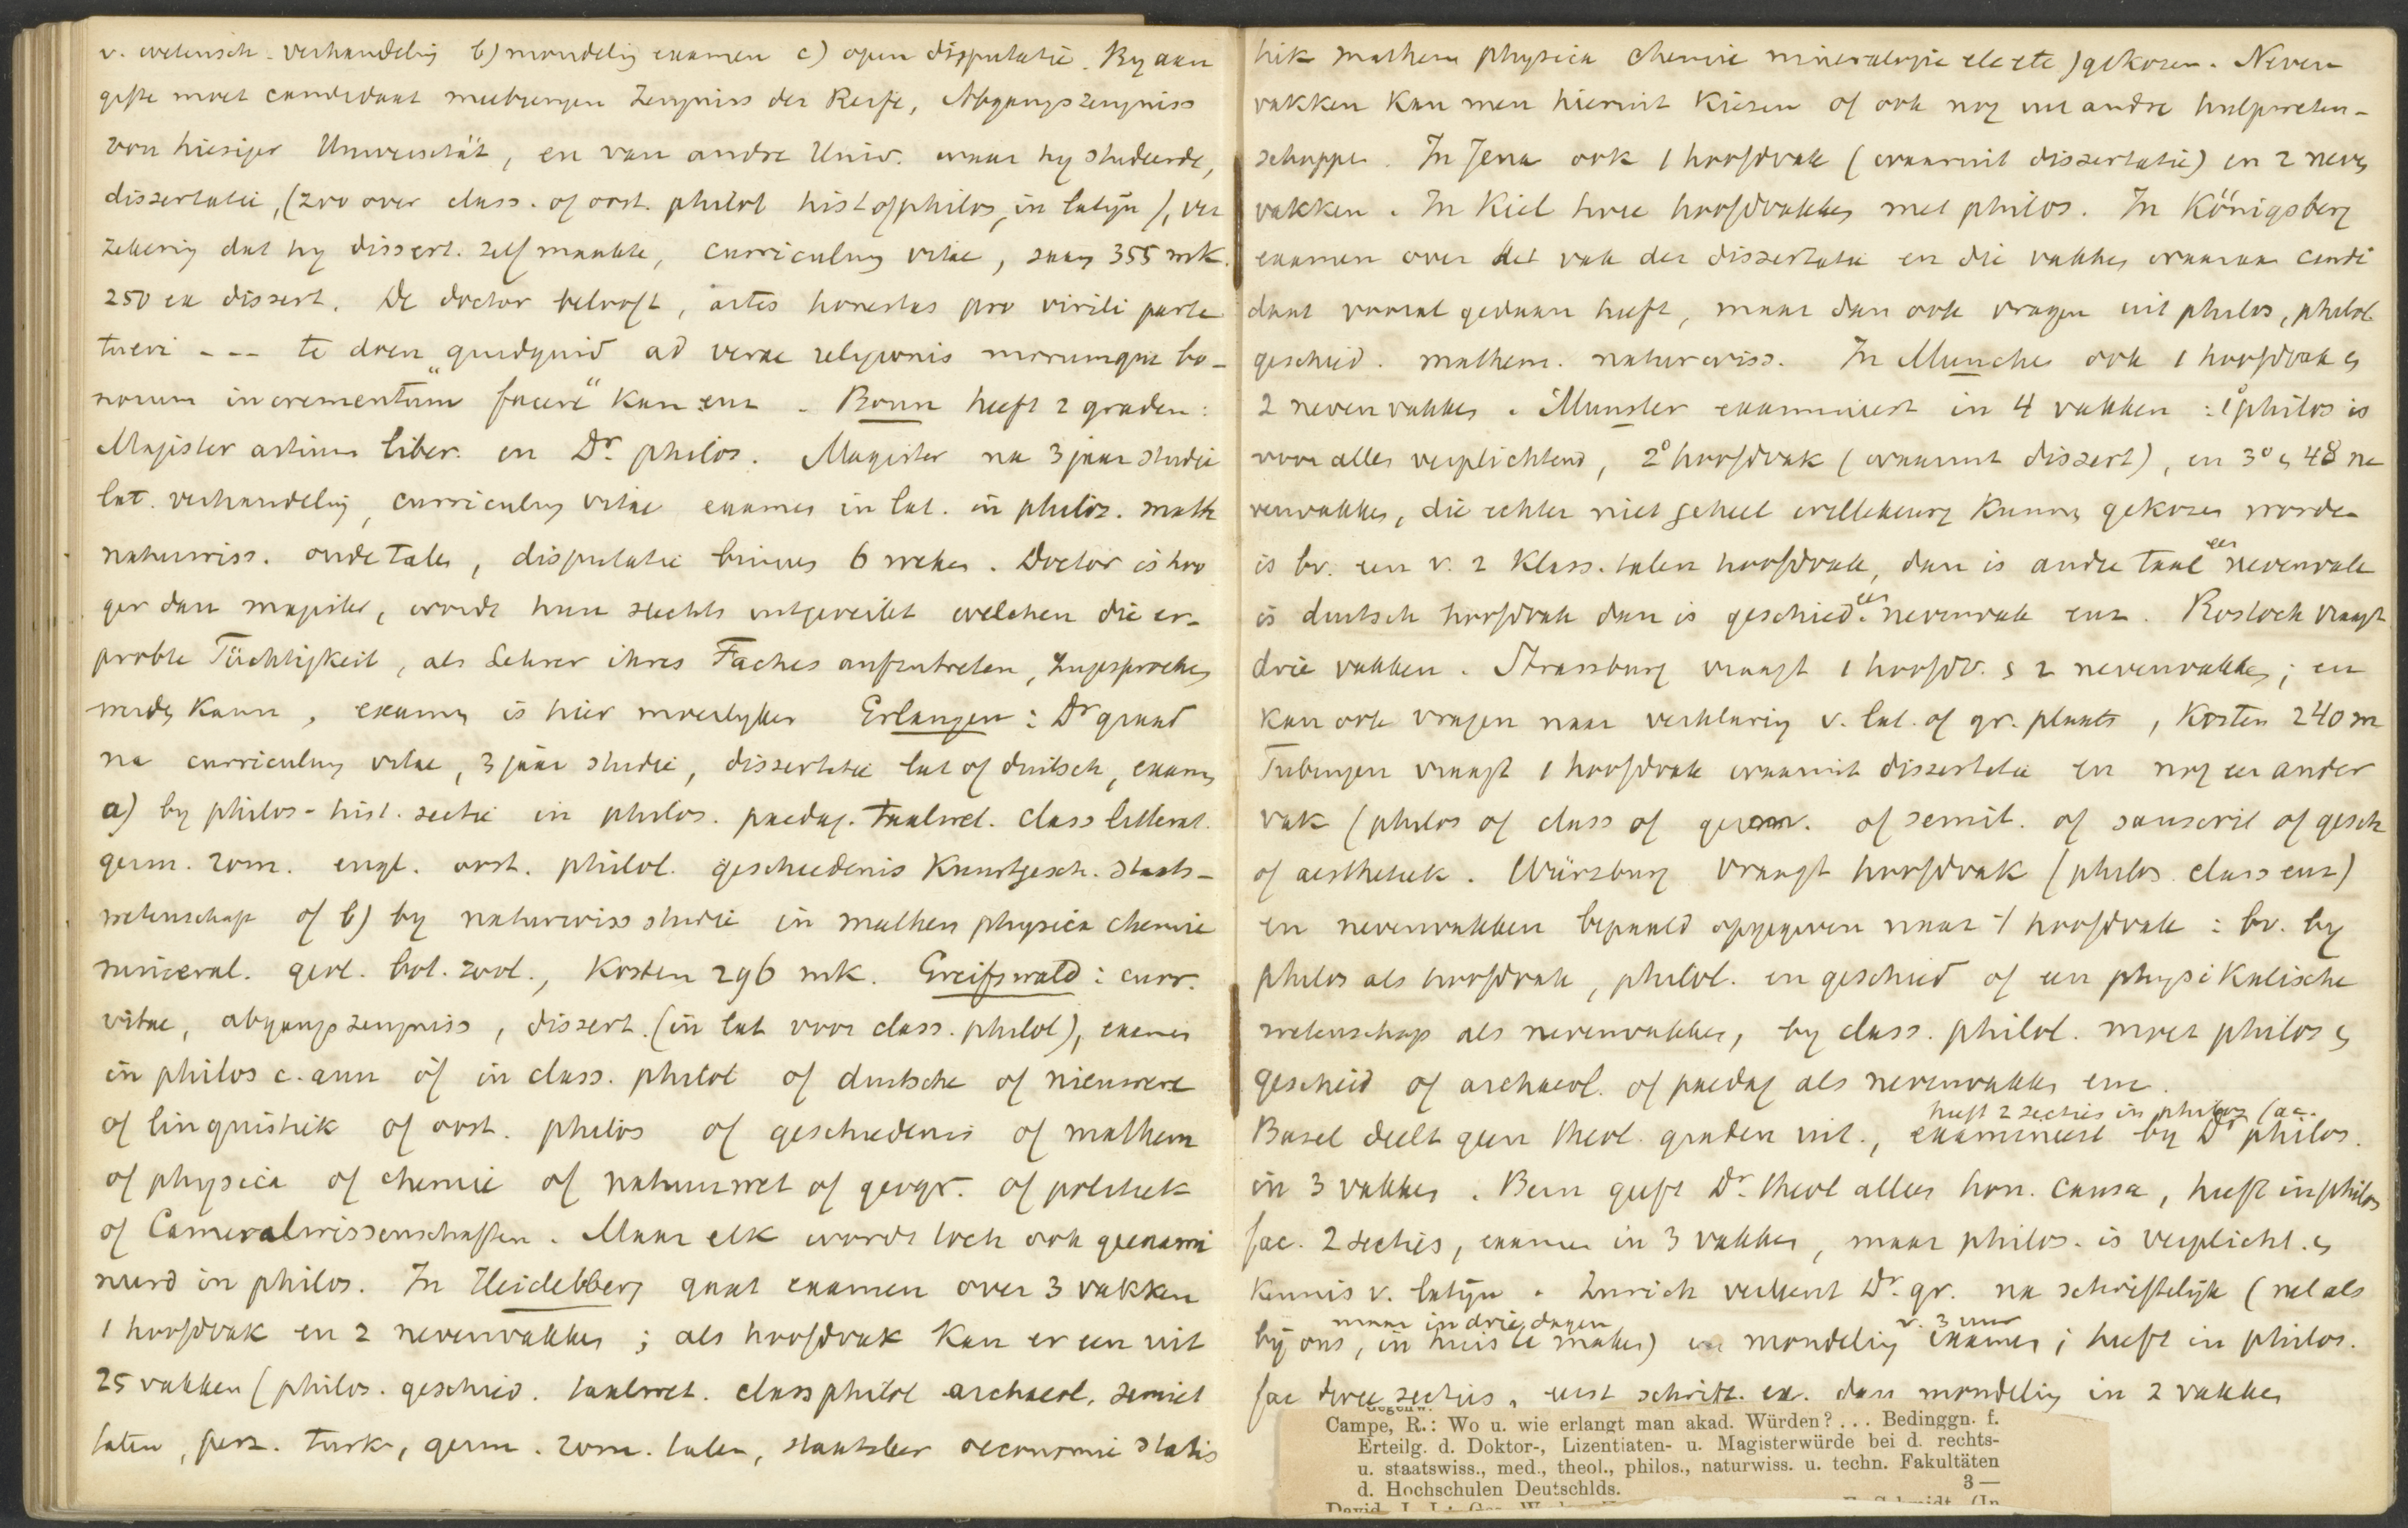 v. wetensch. verhandeling b) mondeling examen c) open disputatie. By aan
gifte moet candidaat meebrengen Zeugniss der Reife, Abgangszeugniss
von hiesiger Universität, en van andre Univ. waar hy studeerde,
dissertatie, (zoo over class. of oost. philol hist of philos, in latijn), ver
zekering dat hy dissert. zelf maakte, curriculum vitae, saam 355 mk.
250 ex dissert. De doctor belooft, artes honestas pro virili parte
tueri --- te doen quidquid ad verae religionis morumque bo-
norum incrementum "facere" kan enz. Bonn heeft 2 graden:
Magister artium liber. en Dr. philos. Magister na 3 jaar studie
lat. verhandeling, curriculum vitae examen in lat. in philos. math
naturwiss. oude talen, disputatie binnen 6 weken. Doctor is hoo
ger dan magister, wordt hun slechts uitgereikt welchen die er-
probte Tüchtigkeit, als Lehrer ihres Faches aufzutreten, zugesprochen
werden kann, examen is hier moeilyker Erlangen: Dr graad
na curriculum vitae, 3 jaar studie, dissertatie lat of duitsch, examen
a) by philos-hist. sectie in philos. paedag. taalwet. class litterat.
germ. rom. engl. oost. philol. geschiedenis Kunstgesch. staats-
wetenschap of b) by naturwiss studie in mathem physica chemie
mineral. geol. bot. zool., Kosten 296 mk. Greifswald: curr.
vitae, abgangszeugniss, dissert. (in lat voor class. philol), examen
in philos c. ann óf in class. philol of duitsche of nieuwere
of linguistiek of oost. philos of geschiedenis of mathem
of physica of chemie of natuurwet of geogr. of politiek
of Cameralwissenschaften. Maar elk wordt toch ook geexami
neerd in philos. In Heidelberg gaat examen over 3 vakken
1 hoofdvak en 2 nevenvakken; als hoofdvak kan er een uit
25 vakken (philos. geschied. taalwet. class philol archaeol. semiet
talen, perz. turk, germ. rom. talen, staatsleer oeconomie statis
tiek mathem physica chemie mineralogie etc etc) gekozen. Neven
vakken kan men hieruit kiezen of ook nog uit andre hulpweten-
schappen. In Jena ook 1 hoofdvak (waaruit dissertatie) en 2 neven
vakken. In Kiel twee hoofdvakken met philos. In Königsberg
examen over het vak der dissertatie en die vakken waaraan candi
daat vooral gedaan heeft, maar dan ook vragen uit philos, philol
geschied. mathem. naturwiss. In Munchen ook 1 hoofdvak en
2 nevenvakken. Munster examineert in 4 vakken: 1o philos is
voor allen verplichtend, 2o hoofdvak (waaruit dissert), en 3o en 4o ne
venvakken, die echter niet geheel willekeurig kunnen gekozen worden
is bv. een v. 2 klass. talen hoofdvak, dan is andre taal een nevenvak
is duitsch hoofdvak dan is geschied. een nevenvak enz. Rostock vraagt
drie vakken. Strassburg vraagt 1 hoofdv. en 2 nevenvakken; en
kan ook vragen naar verklaring v. lat. of gr. plaats, Kosten 240 m
Tubingen vraagt 1 hoofdvak waaruit dissertatie en nog een ander
vak (philos of class of germ. of semit. of sanscrit of gesch
of aesthetiek. Würzburg vraagt hoofdvak (philos. class enz)
en nevenvakken bepaald opgegeven naar 't hoofdvak: bv. by
philos als hoofdvak, philol. en geschied of een physikalische
wetenschap als nevenvakken, by class. philol. moet philos en
geschied of archaeol. of paedag als nevenvakken enz.
heeft 2 secties in philos fac.
Basel deelt geen theol. graden uit., examineert by Dr philos.
in 3 vakken. Bern geeft Dr. theol alleen hon. causa, heeft in philos
fac. 2 secties, examen in 3 vakken, maar philos. is verplicht. en
kennis v. latijn. Zurich verleent Dr. gr. na schriftelijk (net als
maar in drie dagen v. 3 uur
bij ons, in huis te maken) en mondeling examen; heeft in philos.
fac twee secties, eerst schriftl. ex. dan mondeling in 2 vakken
Campe, R.: Wo u. wie erlangt man akad. Würden? . . . Bedinggn. f.
Erteilg. d. Doktor-, Lizentiaten- u. Magisterwürde bei d. rechts-
u. staatswiss., med., theol., philos., naturwiss. u. techn. Fakultäten
d. Hochschulen Deutschlds. 3 —